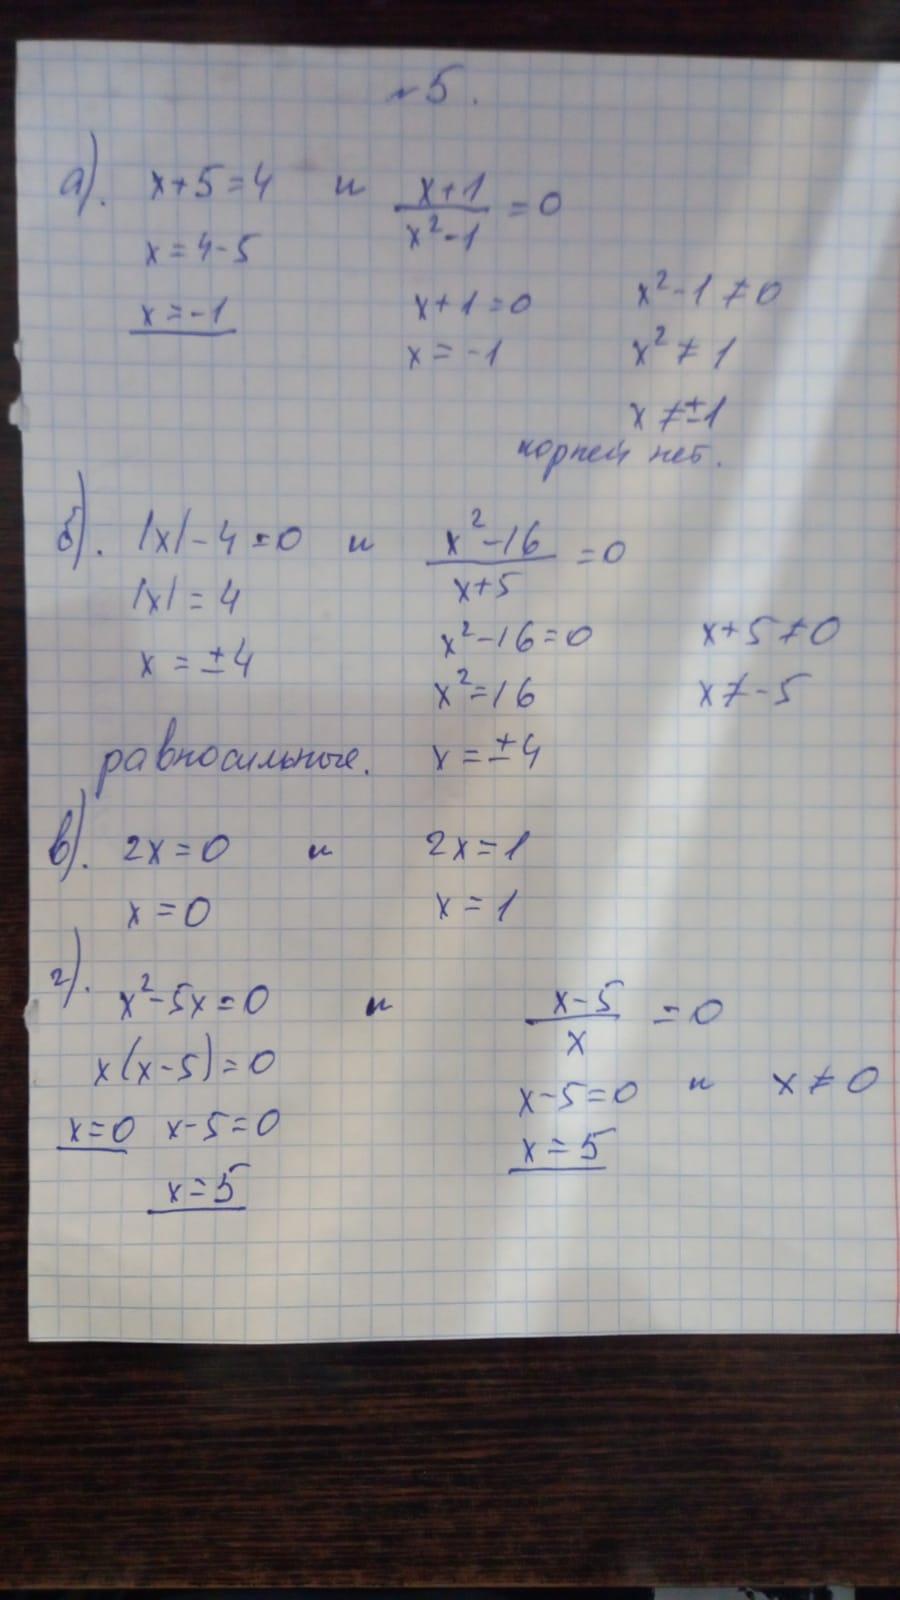 №5.
а). x+5=4 и (x+1)/(x²-1) = 0
x=4-5
x=-1
x+1=0 x²-1≠0
x=-1 x²≠1
x≠±1
корней нет.
б). |x|-4=0 и (x²-16)/(x+5) = 0
|x|=4
x=±4
x²-16=0 x+5≠0
x²=16 x≠-5
равносильные. x=±4
в). 2x=0 и 2x=1
x=0 x=1
г). x²-5x=0 и (x-5)/x = 0
x(x-5)=0 x-5=0 и x≠0
x=0 x-5=0 x=5
x=5